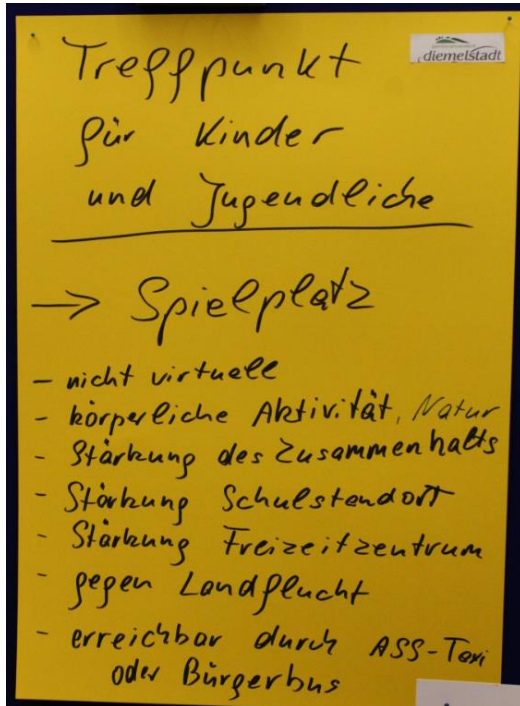 diemelstadt
Treffpunkt
für Kinder
und Jugendliche
→ Spielplatz
- nicht virtuell
- körperliche Aktivität, Natur
- Stärkung des Zusammenhalts
- Stärkung Schulstandort
- Stärkung Freizeitzentrum
- gegen Landflucht
- erreichbar durch ASS-Taxi
oder Bürgerbus